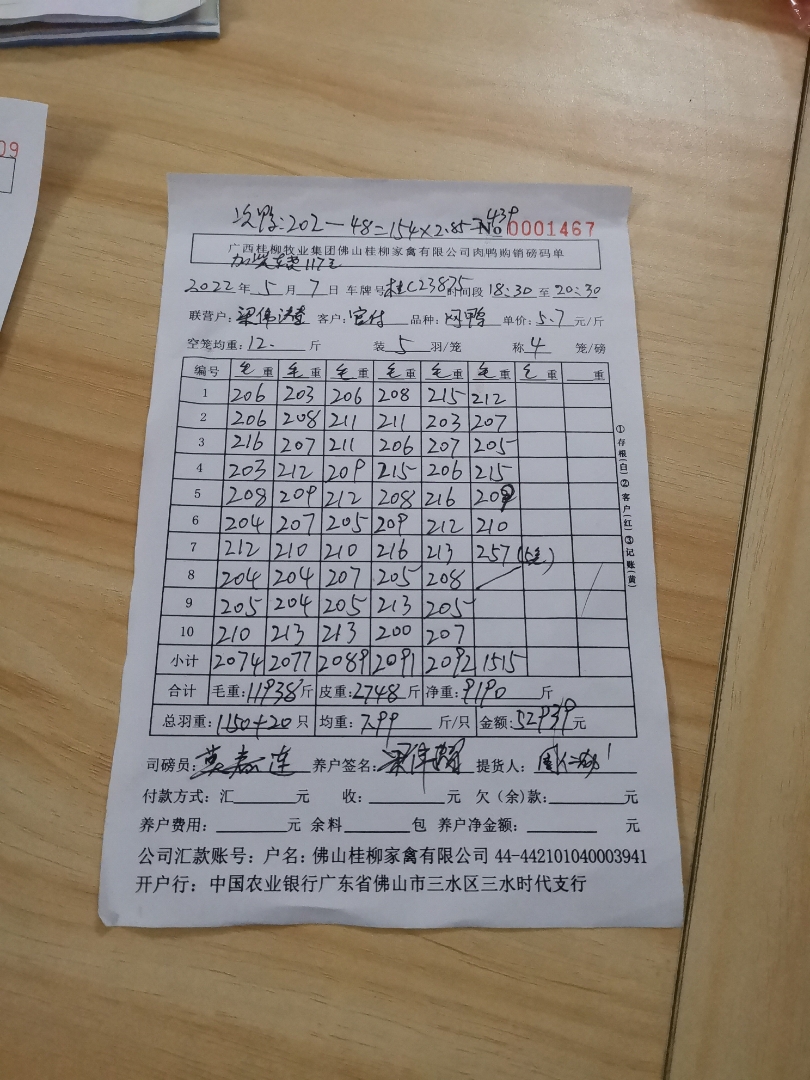 09
次鸭:202-48=154×2.85=439
No 0001467
广西桂柳牧业集团佛山桂柳家禽有限公司肉鸭购销磅码单
2022年5月7日 车牌号桂C23835时间段18:30至20:30
联营户: 客户: 品种: 单价:5.7元/斤
空笼均重:12.斤 装5羽/笼 称4笼/磅
编号 毛重 毛重 毛重 毛重 毛重 毛重 毛重 重
1 206 203 206 208 215 212
2 206 208 211 211 203 207
3 216 207 211 206 207 205
4 203 212 209 215 206 215
5 208 209 212 208 216 209
6 204 207 205 209 212 210
7 212 210 210 216 213 257
8 204 204 207 205 208
9 205 204 205 213 205
10 210 213 213 200 207
小计 2074 2077 2089 2091 2092 1515
合计 毛重:11938斤 皮重:2748斤 净重:9190斤
总羽重:1150+20只 均重:7.99斤/只 金额:52939元
司磅员: 养户签名: 提货人:
付款方式:汇元 收:元 欠(余)款:元
养户费用:元 余料包 养户净金额:元
公司汇款账号:户名:佛山桂柳家禽有限公司 44-442101040003941
开户行:中国农业银行广东省佛山市三水区三水时代支行
①存根(白)②客户(红)③记账(黄)